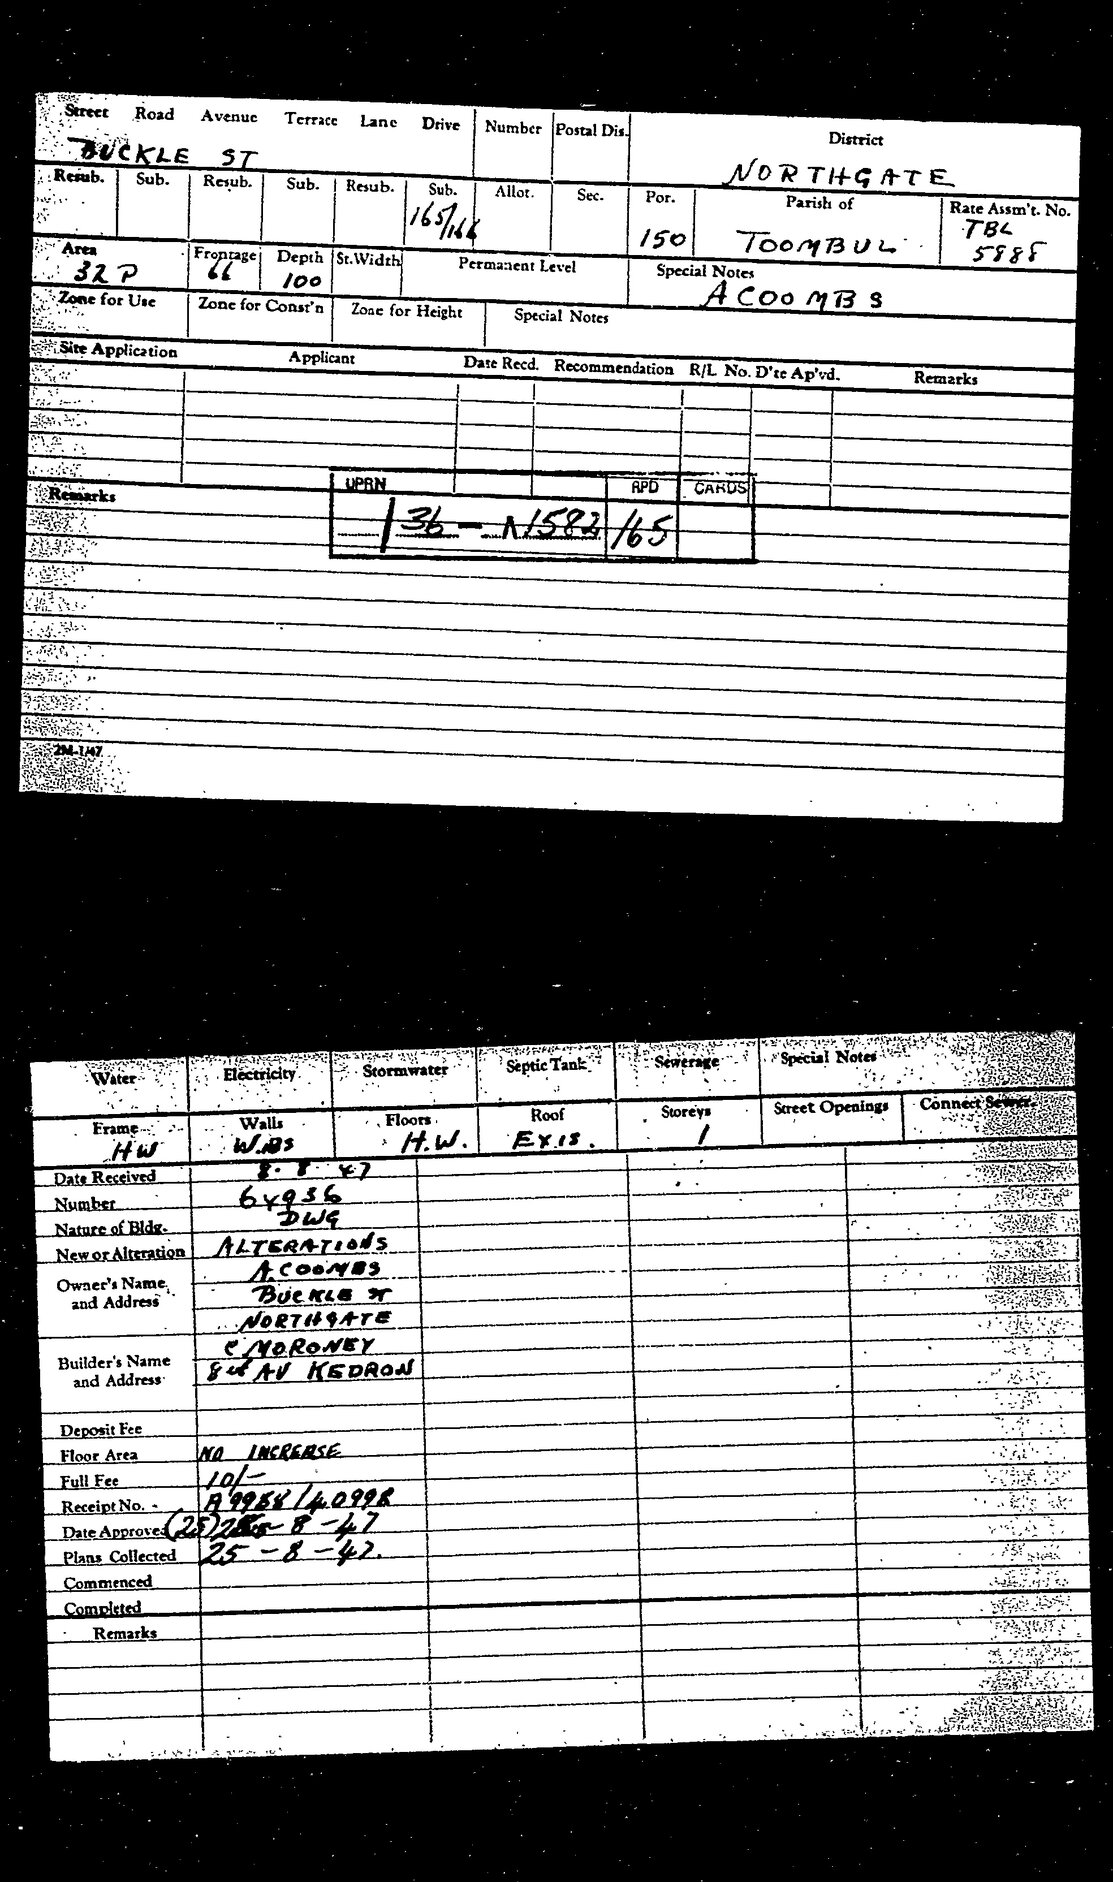 Street Road Avenue Terrace Lane Drive Number Postal Dis. District
BUCKLE ST NORTHGATE
Resub. Sub. Resub. Sub. Resub. Sub. Allot. Sec. Por. Parish of Rate Assm't. No.
165/166 150 TOOMBUL TBL 5988
Area Frontage Depth St.Width Permanent Level Special Notes
32 P 66 100 A COOMBS
Zone for Use Zone for Const'n Zone for Height Special Notes
Site Application Applicant Date Recd. Recommendation R/L No. D'te Ap'vd. Remarks
UPRN RPD CARDS
Remarks
136 - N1582 165
2M-1/47
Water Electricity Stormwater Septic Tank Sewerage Special Notes
Frame Walls Floors Roof Storeys Street Openings Connect Sewer.
HW W.BS H.W. EXIS. 1
Date Received 8. 8. 47
Number 64936
Nature of Bldg. DWG
New or Alteration ALTERATIONS
Owner's Name A. COOMBS
and Address BUCKLE ST
NORTHGATE
Builder's Name C MORONEY
and Address AV KEDRON
Deposit Fee
Floor Area NO INCREASE
Full Fee 10/-
Receipt No. A9958/40998
Date Approved (25) - 8 - 47
Plans Collected 25 - 8 - 47.
Commenced
Completed
Remarks